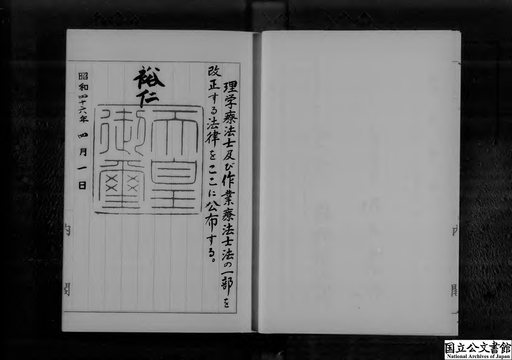 理学療法士及び作業療法士法の一部を
改正する法律をここに公布する。
裕仁
天皇
御璽
昭和四十六年四月一日
内閣
内閣
国立公文書館
National Archives of Japan